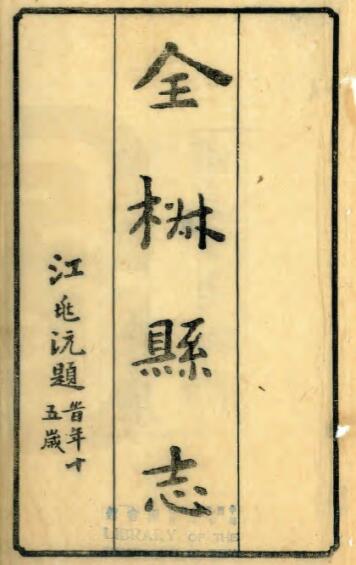 全椒縣志
江兆沅題
旹年十
五歲
LIBRARY OF THE